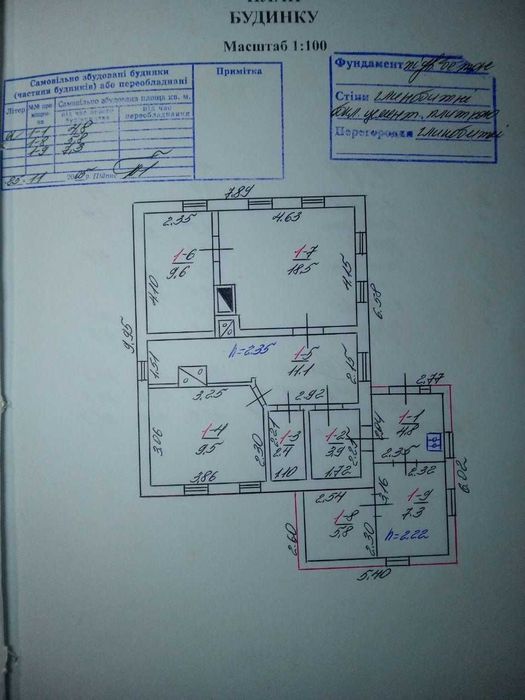 ПЛАН
БУДИНКУ
Масштаб 1:100
Самовільно збудовані будинки
(частини будинків) або переобладнані
Примітка
Літер
№№ при
міщен-
ня
Самовільно збудована площа кв. м.
від час
переобладнання
1-1 4.8
1-8 5.8
1-9 7.3
25 11
р. Підпис
Фундамент
Стіни глинобитні
обл. цемент. плиткою
Перегородки глинобитні
7.89
2.35
4.63
1-6
9.6
1-7
18.5
4.10
4.15
6.58
9.95
h=2.35
1-5
11.1
1.51
2.15
3.25
2.92
2.77
1-1
4.8
2.04
2.35
1-4
9.5
3.06
2.30
3.86
2.21
1-3
2.4
1.10
1-2
3.9
2.23
1.72
2.32
6.02
3.16
1-9
7.3
h=2.22
2.54
1-8
5.8
2.60
2.30
5.40